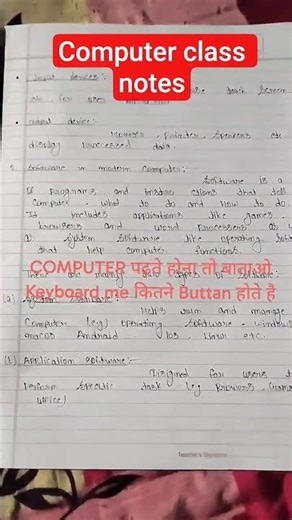 Computer class
notes
Input devices:-
touch screen
etc. for user
output device:-
Monoser, Pointer, Speakers etc
display processed data.
2. Software in modern Computer:-
Software is a
of programs and instructions that tell
Computer what to do and how to do.
It includes applications like games
browsers and word processers, as w
a) System Software like operating
that help computer functions.
COMPUTER पढ़ते होना तो बाताओ
Keyboard me कितने Buttan होते है
(a) System Software:-
Helps run and manage
Computer (eg) operating Software - Windows
macos Android ios. Linux etc.
(b) Application Software:-
Disigned for users t
perform specific task (eg Browers,
office)
Teacher's Signature